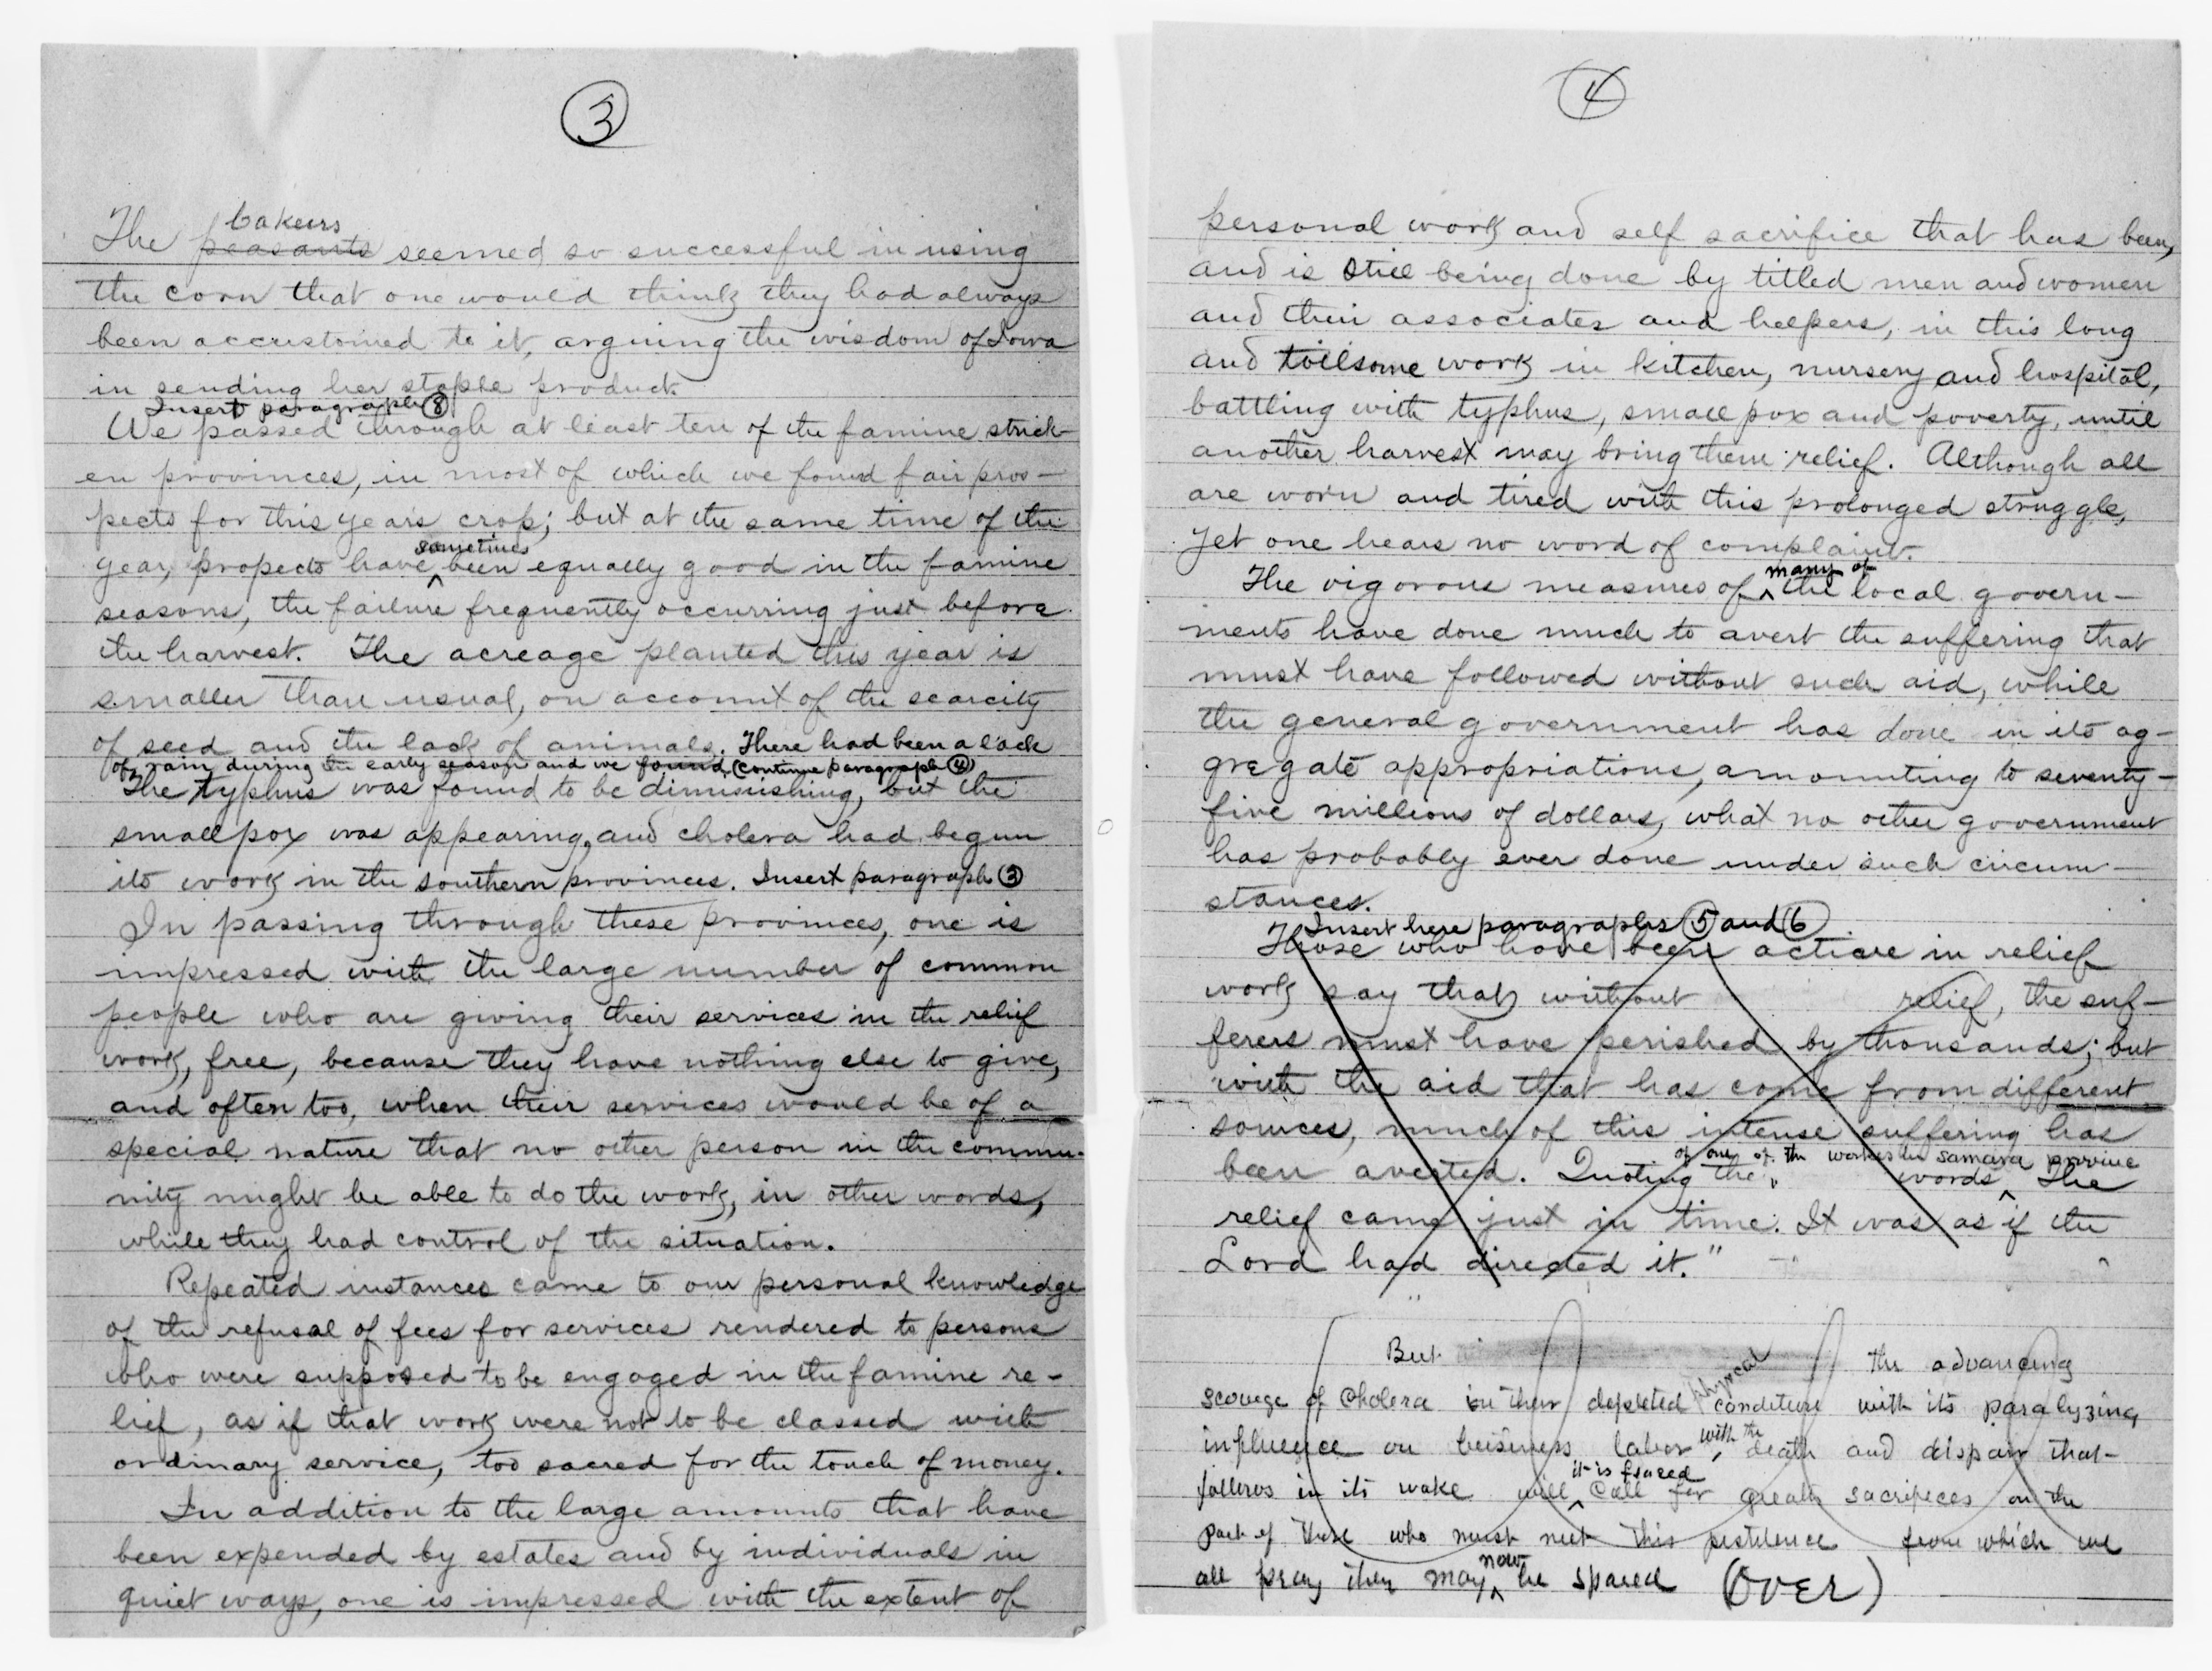 3
bakers
The peasants seemed so successful in using
the corn that one would think they had always
been accustomed to it, arguing the wisdom of Iowa
in sending her staple product.
Insert paragraph 8
We passed through at least ten of the famine strick-
en provinces, in most of which we found fair pros-
pects for this year's crop; but at the same time of the
sometimes
year, propects have been equally good in the famine
seasons, the failure frequently occurring just before
the harvest. The acreage planted this year is
smaller than usual, on account of the scarcity
of seed and the lack of animals. There had been a lack
of rain during the early season and we found (continue paragraph 4)
The typhus was found to be diminishing, but the
smallpox was appearing, and cholera had begun
its work in the southern provinces. Insert paragraph 3
In passing through these provinces, one is
impressed with the large number of common
people who are giving their services in the relief
work, free, because they have nothing else to give,
and often too, when their services would be of a
special nature that no other person in the commu-
nity might be able to do the work, in other words,
while they had control of the situation.
Repeated instances came to our personal knowledge
of the refusal of fees for services rendered to persons
who were supposed to be engaged in the famine re-
lief, as if that work were not to be classed with
ordinary service, too sacred for the touch of money.
In addition to the large amounts that have
been expended by estates and by individuals in
quiet ways, one is impressed with the extent of
4
personal work and self sacrifice that has been,
and is still being done by titled men and women
and their associates and helpers, in this long
and toilsome work in kitchen, nursery and hospital,
battling with typhus, small pox and poverty, until
another harvest may bring them relief. Although all
are worn and tired with this prolonged struggle,
yet one hears no word of complaint.
many of
The vigorous measures of the local govern-
ments have done much to avert the suffering that
must have followed without such aid, while
the general government has done in its ag-
gregate appropriations, amounting to seventy-
five millions of dollars, what no other government
has probably ever done under such circum-
stances.
Insert here paragraphs 5 and 6
Those who have been active in relief
work say that without relief, the suf-
ferers must have perished by thousands; but
with the aid that has come from different
sources, much of this intense suffering has
of one of the workers in Samara provine
been averted. Quoting the words, The
relief came just in time. It was as if the
Lord had directed it."
But the advancing
physical
scourge of Cholera in their depleted condition with its paralyzing
with the
influence on buisiness labor, death and dispair that
it is feared
follows in its wake will call for great sacrifices on the
part of those who must meet this pestilence from which we
now
all pray they may be spared (OVER)